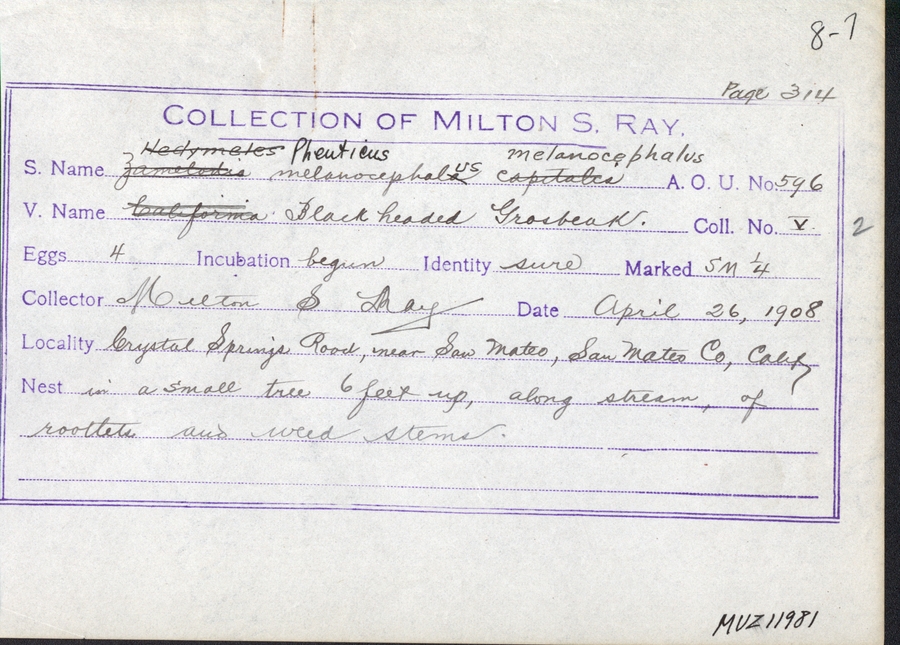 8-7
Page 314
COLLECTION OF MILTON S. RAY.
Hedymeles Pheuticus melanocephalus
S. Name Zamelodia melanocephalus capitalis A. O. U. No. 596
V. Name California Black headed Grosbeak. Coll. No. V. 2
Eggs 4 Incubation begun Identity sure Marked SM 1/4
Collector Milton S Ray Date April 26, 1908
Locality Crystal Springs Road, near San Mateo, San Mateo Co, Calif
Nest in a small tree 6 feet up, along stream, of
rootlets and weed stems.
MVZ 11981